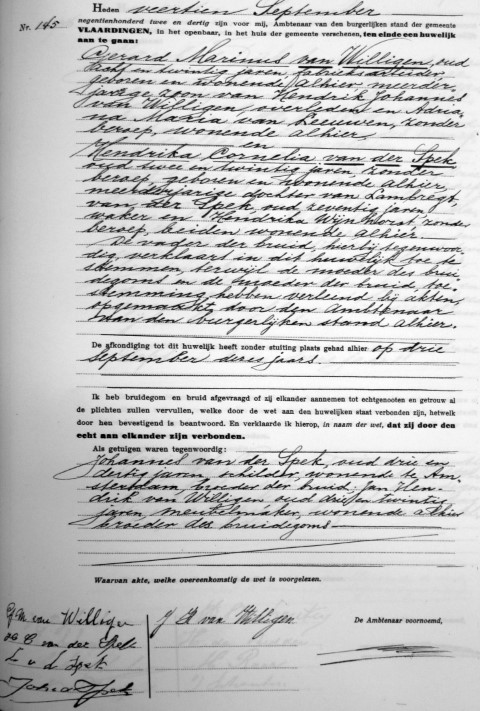 Heden veertien September
Nr. 145
negentienhonderd twee en dertig zijn voor mij, Ambtenaar van den burgerlijken stand der gemeente
VLAARDINGEN, in het openbaar, in het huis der gemeente verschenen, ten einde een huwelijk
aan te gaan:
Gerard Marinus van Willigen, oud
acht en twintig jaren, fabrieksarbeider,
geboren en wonende alhier, meerder-
jarige zoon van Hendrik Johannes
van Willigen, overleden en Adria-
na Maria van Leeuwen, zonder
beroep, wonende alhier,
en
Hendrika Cornelia van der Spek
oud twee en twintig jaren, zonder
beroep, geboren en wonende alhier,
meerderjarige dochter van Lambregt
van der Spek, oud zeventig jaren,
waker en Hendrika Wijnhorst, zonder
beroep, beiden wonende alhier.
De vader der bruid, hierbij tegenwoor-
dig, verklaart in dit huwelijk toe te
stemmen, terwijl de moeder des brui-
degoms en de moeder der bruid, toe-
stemming hebben verleend bij akten,
opgemaakt door den Ambtenaar
van den burgerlijken stand alhier.
De afkondiging tot dit huwelijk heeft zonder stuiting plaats gehad alhier op drie
September dezes jaars.
Ik heb bruidegom en bruid afgevraagd of zij elkander aannemen tot echtgenooten en getrouw al
de plichten zullen vervullen, welke door de wet aan den huwelijken staat verbonden zijn, hetwelk
door hen bevestigend is beantwoord. En verklaarde ik hierop, in naam der wet, dat zij door den
echt aan elkander zijn verbonden.
Als getuigen waren tegenwoordig:
Johannes van der Spek, oud drie en
dertig jaren, schilder, wonende te Am-
sterdam, broeder der bruid; Jan Hen-
drik van Willigen, oud drie en twintig
jaren, meubelmaker, wonende alhier
broeder des bruidegoms
Waarvan akte, welke overeenkomstig de wet is voorgelezen.
G M van Willigen
H C van der Spek
L v d Spek
Joh v d Spek
J H van Willigen
De Ambtenaar voornoemd,